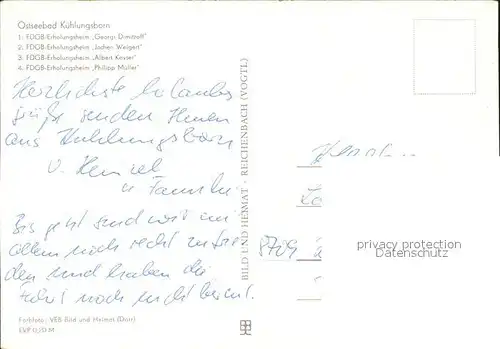 Ostseebad Kühlungsborn
1. FDGB-Erholungsheim „Georgi Dimitroff"
2. FDGB-Erholungsheim „Jochen Weigert"
3. FDGB-Erholungsheim „Albert Kayser"
4. FDGB-Erholungsheim „Philipp Müller"
Herzlichste Urlaubs
grüße senden Ihnen
aus Kühlungsborn
u Familie
Bis jetzt sind wir mit
allem noch recht zufrie
den und haben die
Fahrt noch nicht bereut.
Farbfoto: VEB Bild und Heimat (Dorr)
EVP 0,20 M
BILD UND HEIMAT · REICHENBACH (VOGTL)
8709
privacy protection
Datenschutz